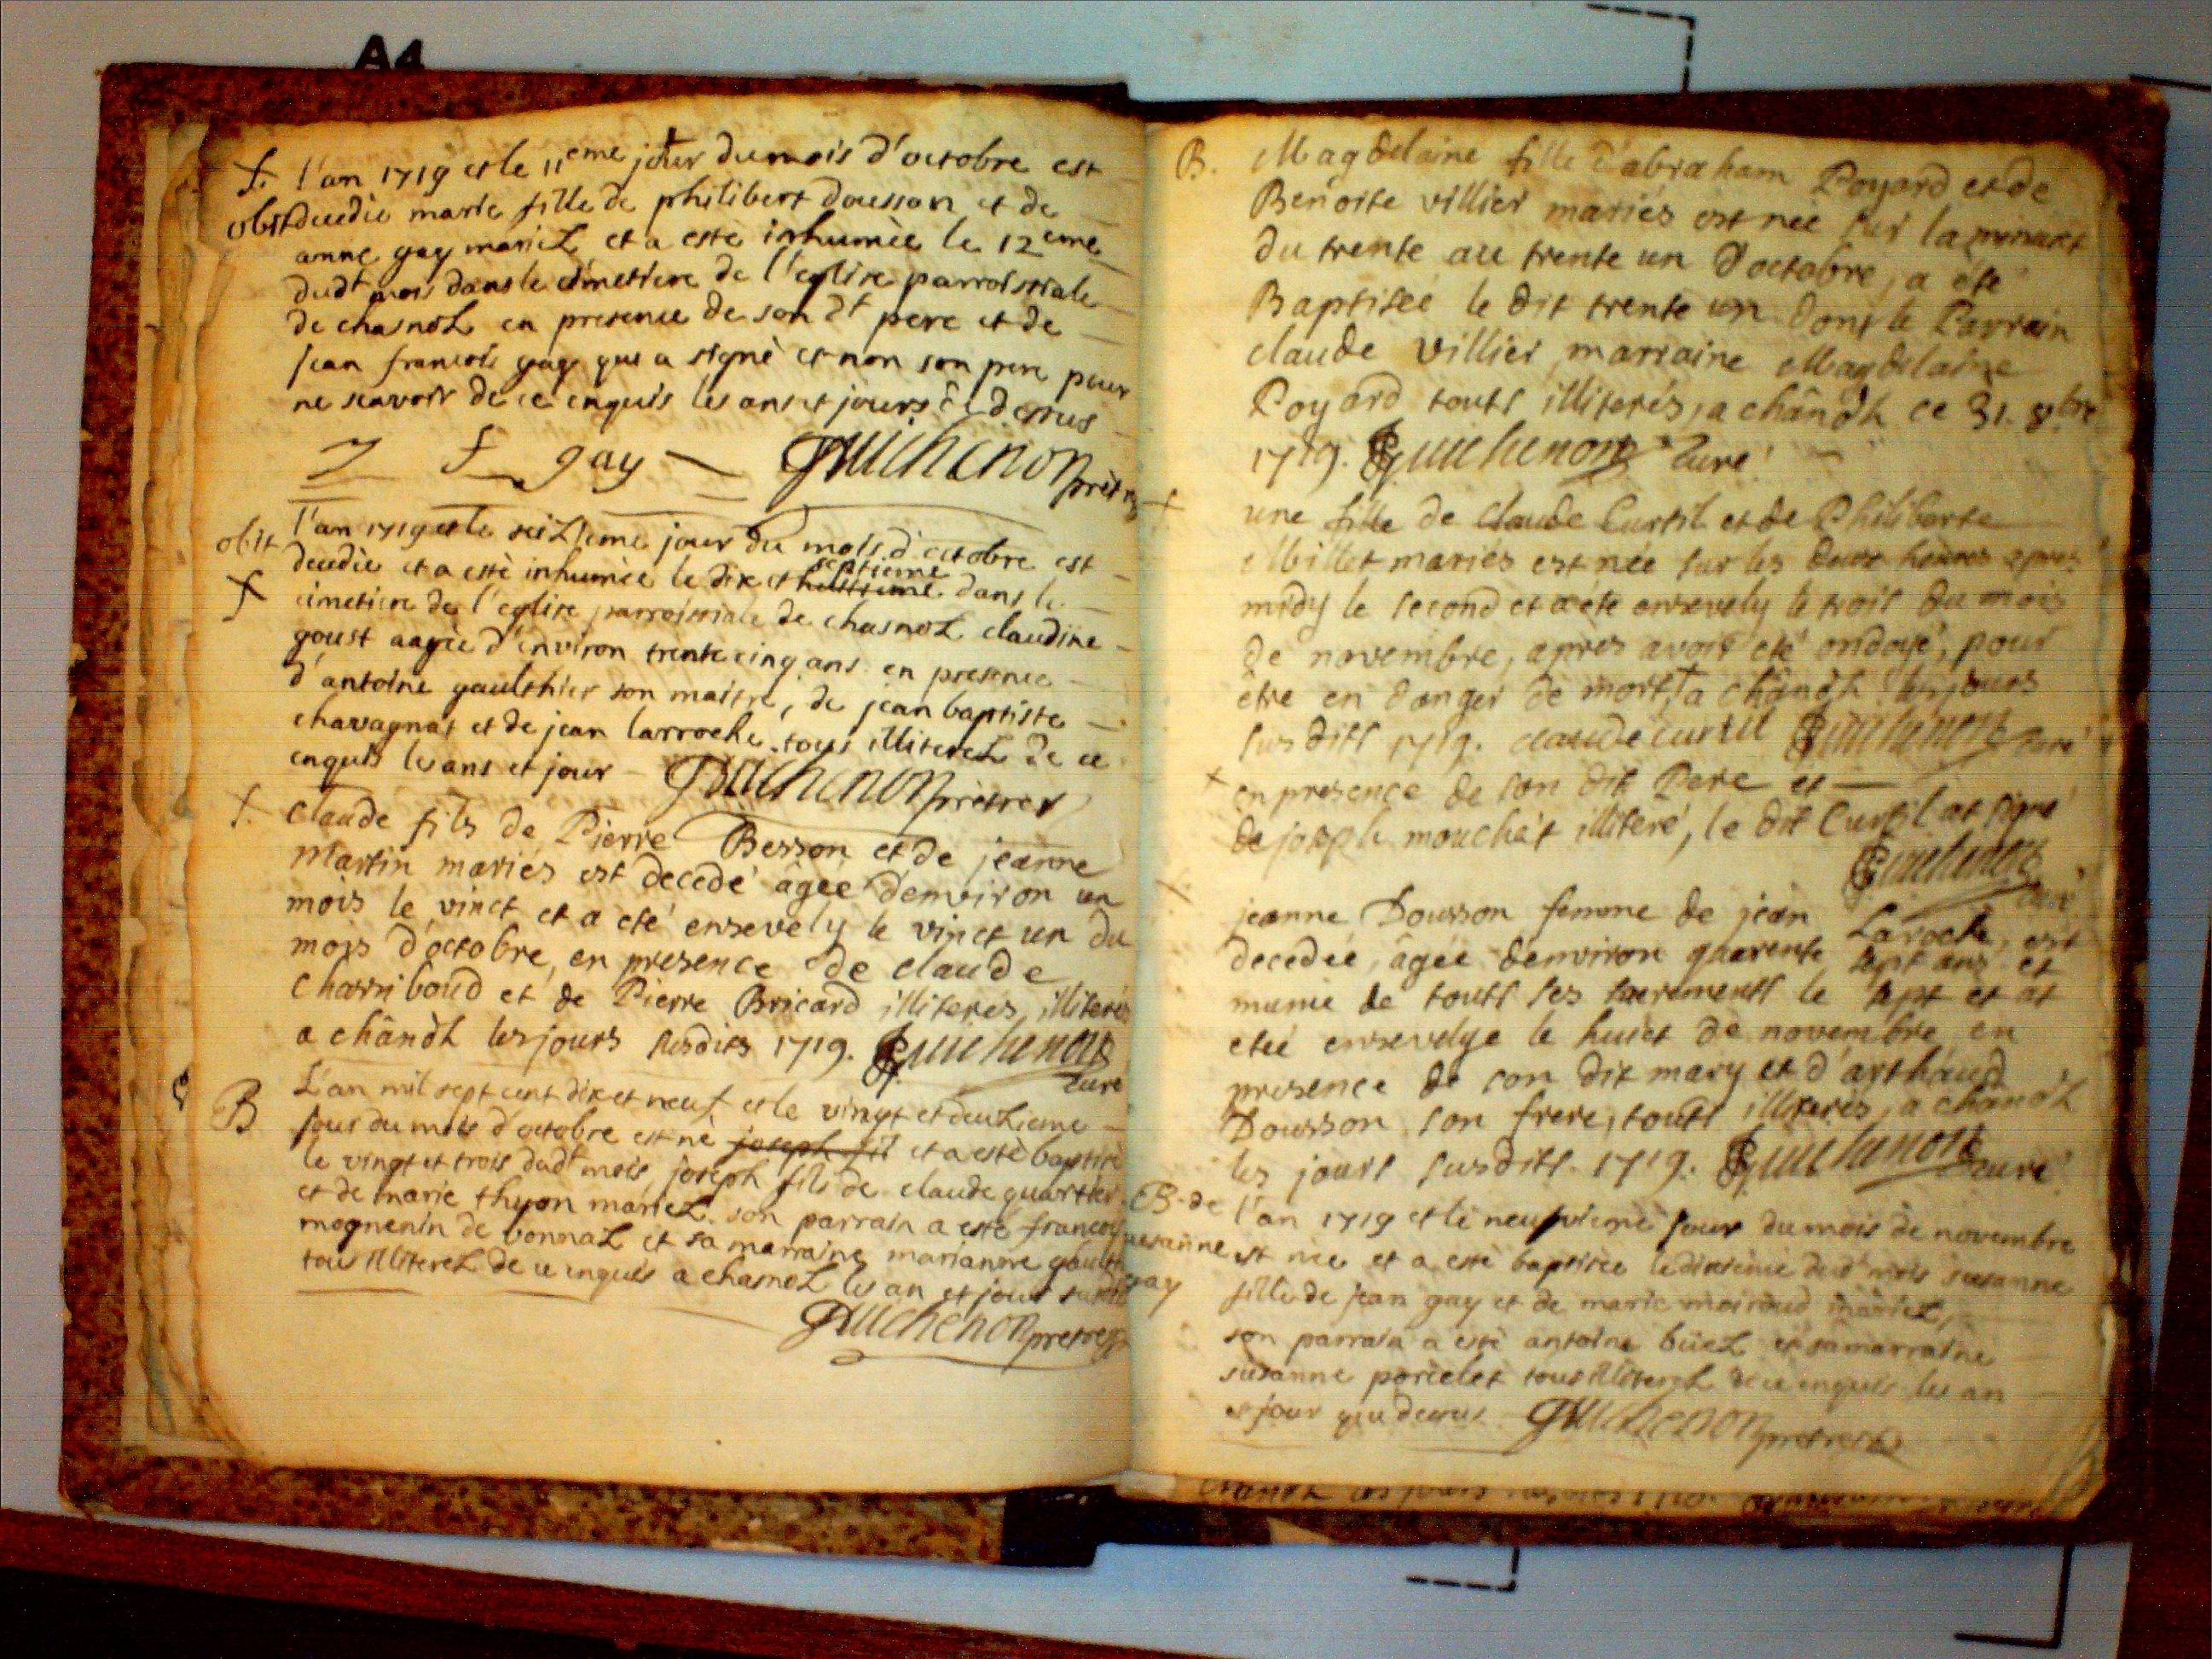 A4
†. l'an 1719 et le 11eme jour du mois d'octobre est
obit decedie marie fille de philibert dousson et de
anne gay mariez et a esté inhumèe le 12eme
dudt mois dans le cimetiere de l'eglise parroissiale
de chasnoz en presence de son dt pere et de
jean francois gay qui a signè et non son pere pour
ne scavoir de ce enquis les ans et jours cy dessus
J f gay Guichenon prêtre
l'an 1719 et le seizieme jour du mois d'octobre est
obit decedie et a estè inhumèe le dix et huitieme septieme dans le
† cimetiere de l'eglise parroissiale de chasnoz claudine
goust aagée d'environ trente cinq ans en presence
d'antoine gaulthier son maitre, de jean baptiste
chavagnat et de jean larroche tous illiterez de ce
enquis les ans et jour Guichenon prêtre
†. Claude fils de Pierre Besson et de jeanne
Martin mariés est decedé âgée d'environ un
mois le vinct et a eté ensevely le vinct un du
mois d'octobre, en presence de claude
Charriboud et de Pierre Bricard illiterés, illiterés
a chânôz les jours susdits 1719. Guichenon
Curé
B L'an mil sept cent dix et neuf et le vingt et deuzieme
jour du mois d'octobre est nè joseph fil et a estè baptisé
le vingt et trois dudt mois joseph fils de claude quartier
et de marie thyon mariez son parrain a esté françois
mognenin de vonnaz et sa marraine marianne gaulth
tous illiterez de ce enquis a chasnoz les an et jour susdit
Guichenon prêtre
B. Magdelaine fille d'abraham Poyard et de
Benoite villier mariés est née sur la minuit
du trente au trente un d'octobre, a été
Baptisée le dit trente un dont le Parrain
claude villier, marraine Magdelaine
Poyard touts illiterés, a chânôz ce 31. 8bre
1719. Guichenon Curé
† une fille de claude Curtil et de Philiberte
Millet mariés est née sur les deux heures apres
midy le second et a eté ensevely le trois du mois
de novembre, apres avoir eté ondoyé, pour
être en danger de mort, † a chânôz les jours
susdits 1719. claude curtil Guichenon curé
† en presence de son dit Pere et
de joseph mouchet illiteré, le dit Curtil at signé
Guichenon
curé
jeanne Dousson femme de jean Laroche, est
decedée, âgée d'environ quarente sept ans et
munie de touts ses sacrements le sept et at
eteé ensevelye le huict de novembre en
presence de son dit mary et d'arthaud
Dousson son frere, touts illiterés, a chânôz
les jours susdits 1719. Guichenon curé
B. de l'an 1719 et le neufvieme jour du mois de novembre
susanne est nee et a esté baptisée le dixieme dudt mois susanne
gay fille de jean gay et de marie moiroud mariez,
son parrain a estè antoine büez et sa marraine
susanne porcelet tous illiterez de ce enquis les an
et jour que dessus Guichenon prêtre